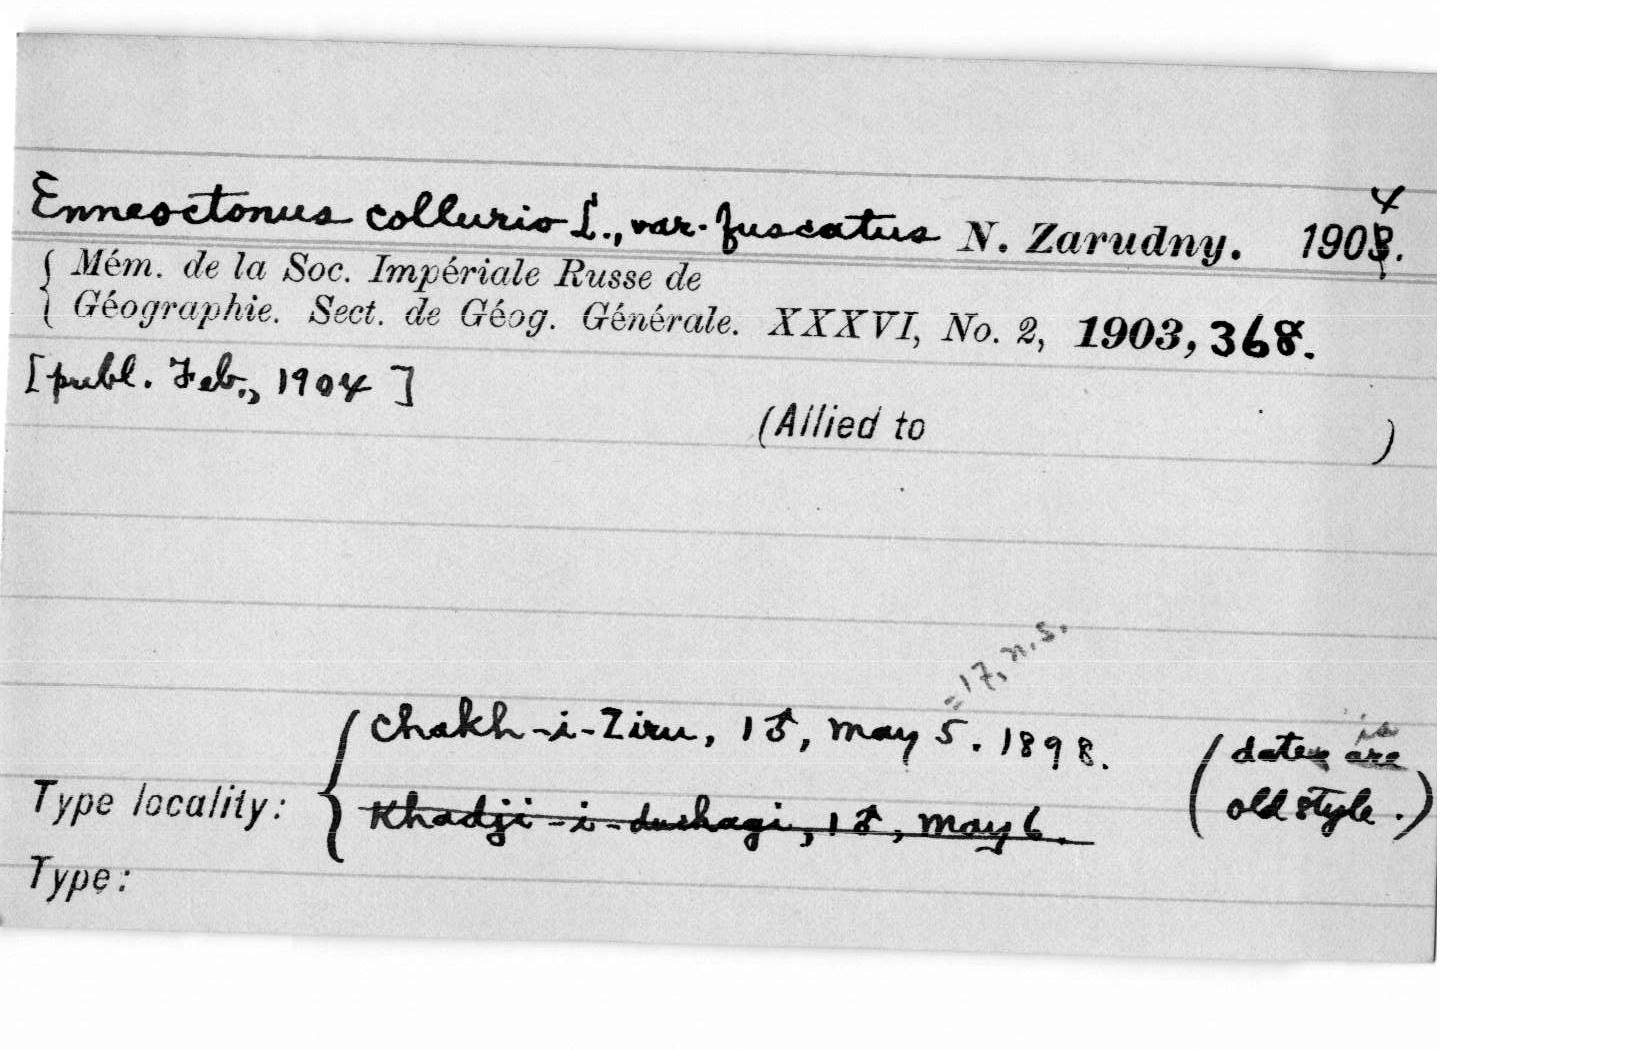 Enneoctonus collurio L., var. fuscatus N. Zarudny. 1904.
Mém. de la Soc. Impériale Russe de
Géographie. Sect. de Géog. Générale. XXXVI, No. 2, 1903, 368.
[publ. Feb., 1904]
(Allied to )
=17, n.s.
Chakh-i-Ziru, 1♂, May 5. 1898.
(date is
Type locality:
Khadji-i-dushagi, 1♂, May 6.
old style.)
Type: